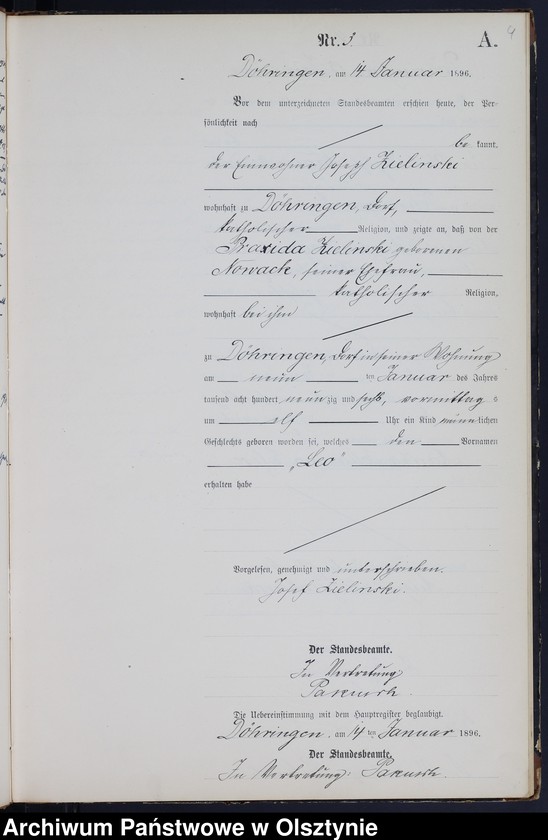 Nr. 3.
A.
4
Döhringen, am 14 Januar 1896.
Vor dem unterzeichneten Standesbeamten erschien heute, der Per-
sönlichkeit nach
be kannt,
der Einwohner Joseph Zielinski
wohnhaft zu Döhringen, Dorf,
katholischer Religion, und zeigte an, daß von der
Praxida Zielinski geborenen
Nowack, seiner Ehefrau,
katholischer Religion,
wohnhaft bei ihm
zu Döhringen, Dorf in seiner Wohnung
am neun ten Januar des Jahres
tausend acht hundert neun zig und sechs, vormittag s
um elf Uhr ein Kind männlichen
Geschlechts geboren worden sei, welches den Vornamen
„Leo"
erhalten habe
Vorgelesen, genehmigt und unterschrieben.
Josef Zielinski.
Der Standesbeamte.
In Vertretung
Die Uebereinstimmung mit dem Hauptregister beglaubigt.
Döhringen, am 14 ten Januar 1896.
Der Standesbeamte.
In Vertretung.
Archiwum Państwowe w Olsztynie